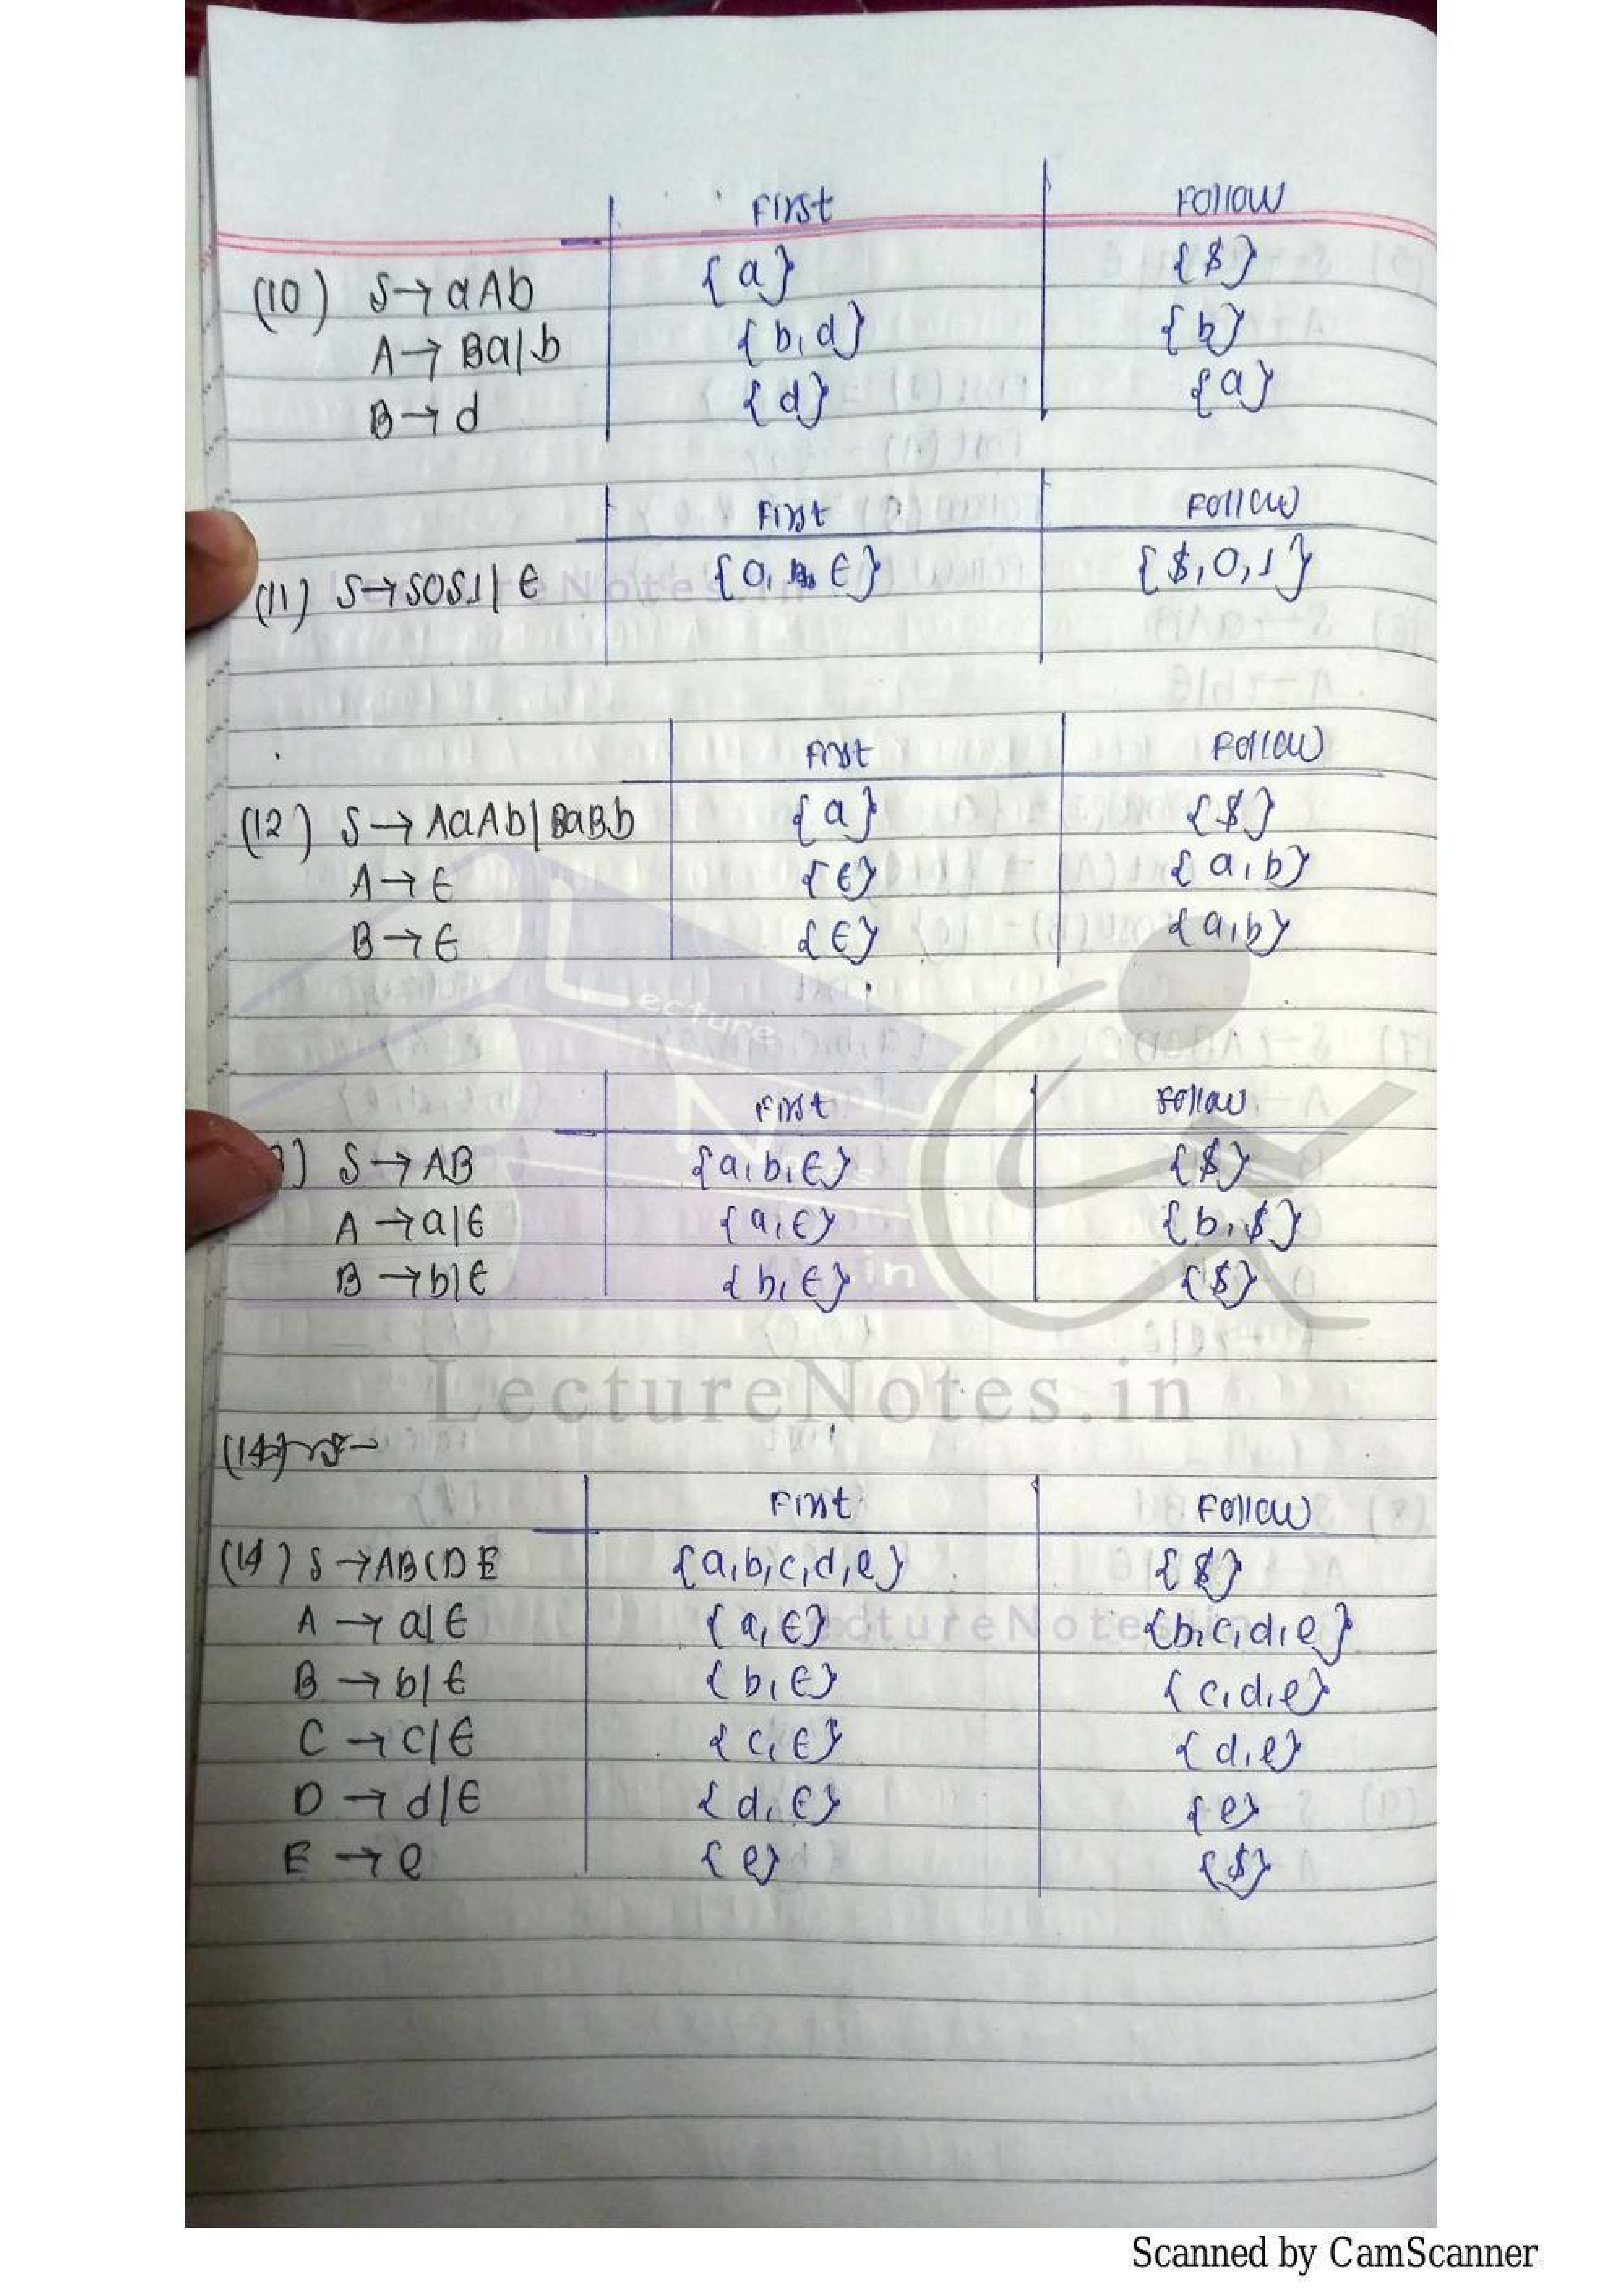 First Follow
(10) S→aAb {a} {$}
A→Ba|b {b,d} {b}
B→d {d} {a}
First Follow
(11) S→S0S1|ϵ {0, ϵ} {$,0,1}
First Follow
(12) S→AaAb|BaBb {a} {$}
A→ϵ {ϵ} {a,b}
B→ϵ {ϵ} {a,b}
Lecture
Notes
.in
First Follow
) S→AB {a,b,ϵ} {$}
A→a|ϵ {a,ϵ} {b,$}
B→b|ϵ {b,ϵ} {$}
LectureNotes.in
First Follow
(14) S→ABCDE {a,b,c,d,e} {$}
A→a|ϵ {a,ϵ} {b,c,d,e}
B→b|ϵ {b,ϵ} {c,d,e}
C→c|ϵ {c,ϵ} {d,e}
D→d|ϵ {d,ϵ} {e}
E→e {e} {$}
Scanned by CamScanner